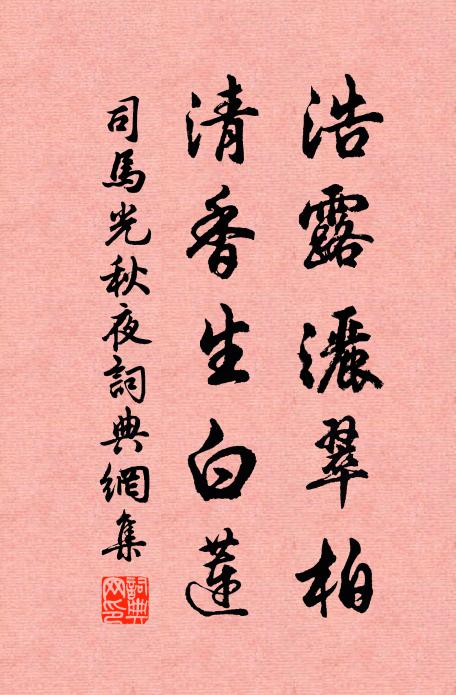 浩露灑翠柏
清香生白蓮
司馬光秋夜詞典網集
詞典網印